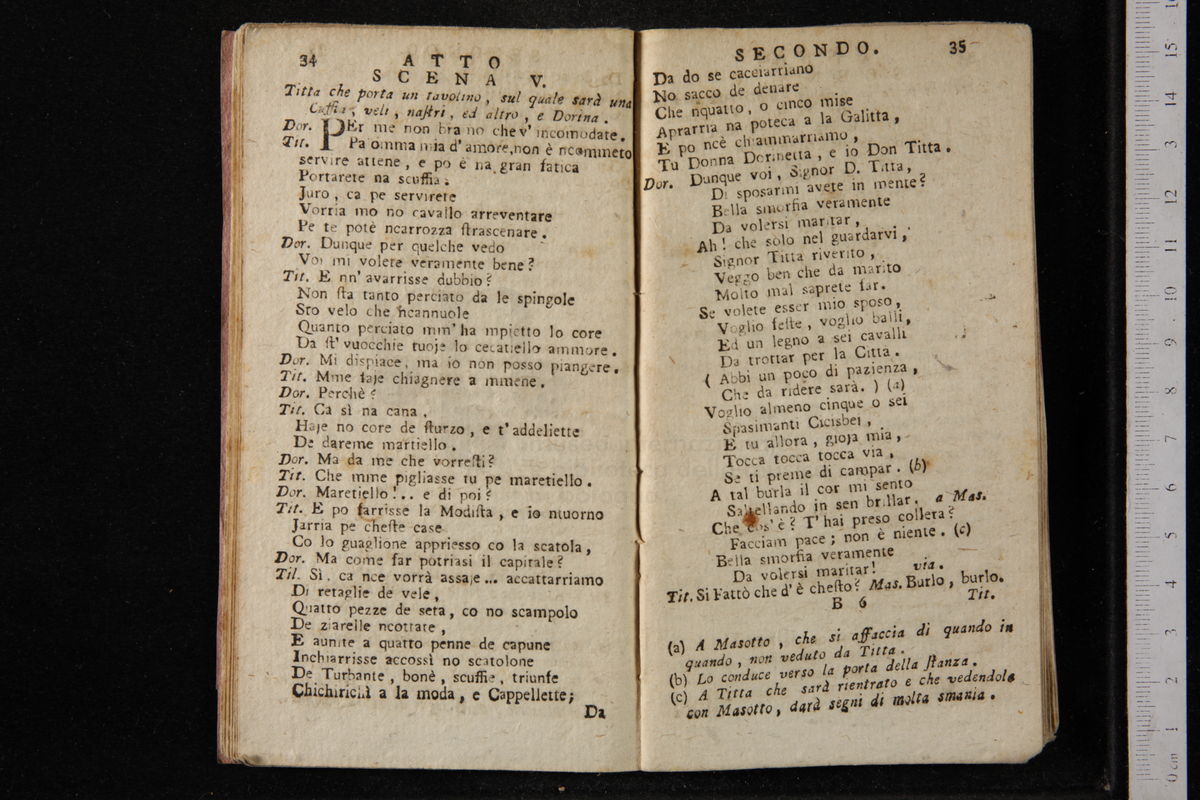 34 ATTO
SCENA V.
Titta che porta un tavolino, sul quale sarà una
Cuffia, veli, naſtri, ed altro, e Dorina.
Dor. PEr me non bramo che v' incomodate.
Tit. Pa omma mia d' amore, non è ncommeto
servire attene, e po è na gran fatica
Portarete na scuffia.
Juro, ca pe servirete
Vorria mo no cavallo arreventare
Pe te potè ncarrozza ſtrascenare.
Dor. Dunque per quelche vedo
Voi mi volete veramente bene?
Tit. E nn' avarrisse dubbio?
Non ſta tanto perciato da le spingole
Sto velo che ncannuole
Quanto perciato mm' ha mpietto lo core
Da ſt' vuocchie tuoje lo cecatiello ammore.
Dor. Mi dispiace, ma io non posso piangere.
Tit. Mme faje chiagnere a mmene.
Dor. Perchè?
Tit. Ca sì na cana.
Haje no core de ſturzo, e t' addeliette
De dareme martiello.
Dor. Ma da me che vorreſti?
Tit. Che mme pigliasse tu pe maretiello.
Dor. Maretiello!.. e di poi?
Tit. E po farrisse la Modiſta, e io ntuorno
Jarria pe cheſte case
Co lo guaglione appriesso co la scatola,
Dor. Ma come far potriasi il capitale?
Til. Sì, ca nce vorrà assaje... accattarriamo
Di retaglie de vele,
Quatto pezze de seta, co no scampolo
De ziarelle ncottate,
E aunite a quatto penne de capune
Inchiarrisse accossì no scatolone
De Turbante, bonè, scuffie, triunfe
Chichirichì a la moda, e Cappellette;
Da
SECONDO. 35
Da do se cacciarriano
No sacco de denare
Che nquatto, o cinco mise
Aprarria na poteca a la Galitta,
E po ncè chiammarriamo,
Tu Donna Dorinetta, e io Don Titta.
Dor. Dunque voi, Signor D. Titta,
Di sposarmi avete in mente?
Bella smorfia veramente
Da volersi maritar,
Ah! che solo nel guardarvi,
Signor Titta riverito,
Veggo ben che da marito
Molto mal saprete far.
Se volete esser mio sposo,
Voglio feſte, voglio balli,
Ed un legno a sei cavalli
Da trottar per la Città.
( Abbi un poço di pazienza,
Che da ridere sarà. ) (a)
Voglio almeno cinque o sei
Spasimanti Cicisbei,
E tu allora, gioja mia,
Tocca tocca tocca via,
Se ti preme di campar. (b)
A tal burla il cor mi sento
Saltellando in sen brillar. a Mas.
Che cos' è? T' hai preso collera?
Facciam pace; non è niente. (c)
Bella smorfia veramente
Da volersi maritar! via.
Tit. Si Fattò che d' è cheſto? Mas. Burlo, burlo.
B 6 Tit.
(a) A Masotto, che si affaccia di quando in
quando, non veduto da Titta.
(b) Lo conduce verso la porta della ſtanza.
(c) A Titta che sarà rientrato e che vedendolo
con Masotto, darà segni di molta smania.
0 cm 1 2 3 4 5 6 7 8 9 10 11 12 13 14 15